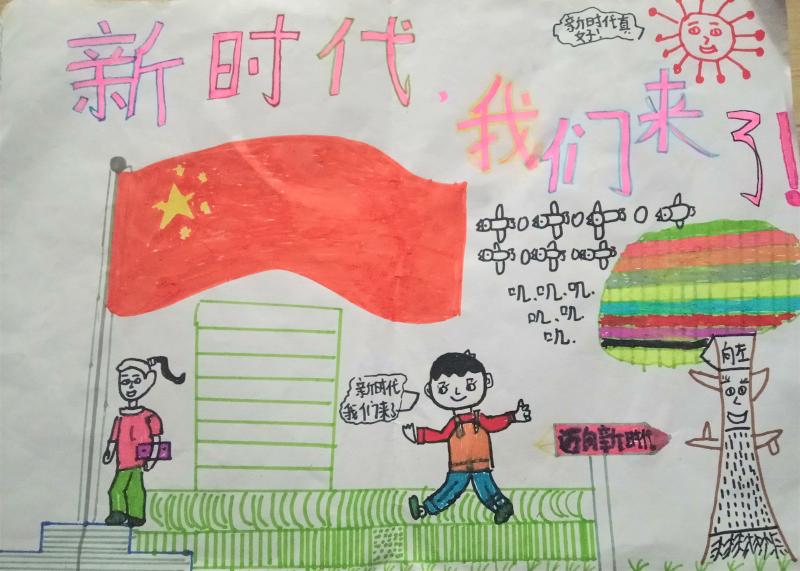 新时代真
好!
新时代,
我们来了!
叽.叽.叽.
叽.叽.
叽.
向左
新时代
我们来了
迈向新时代